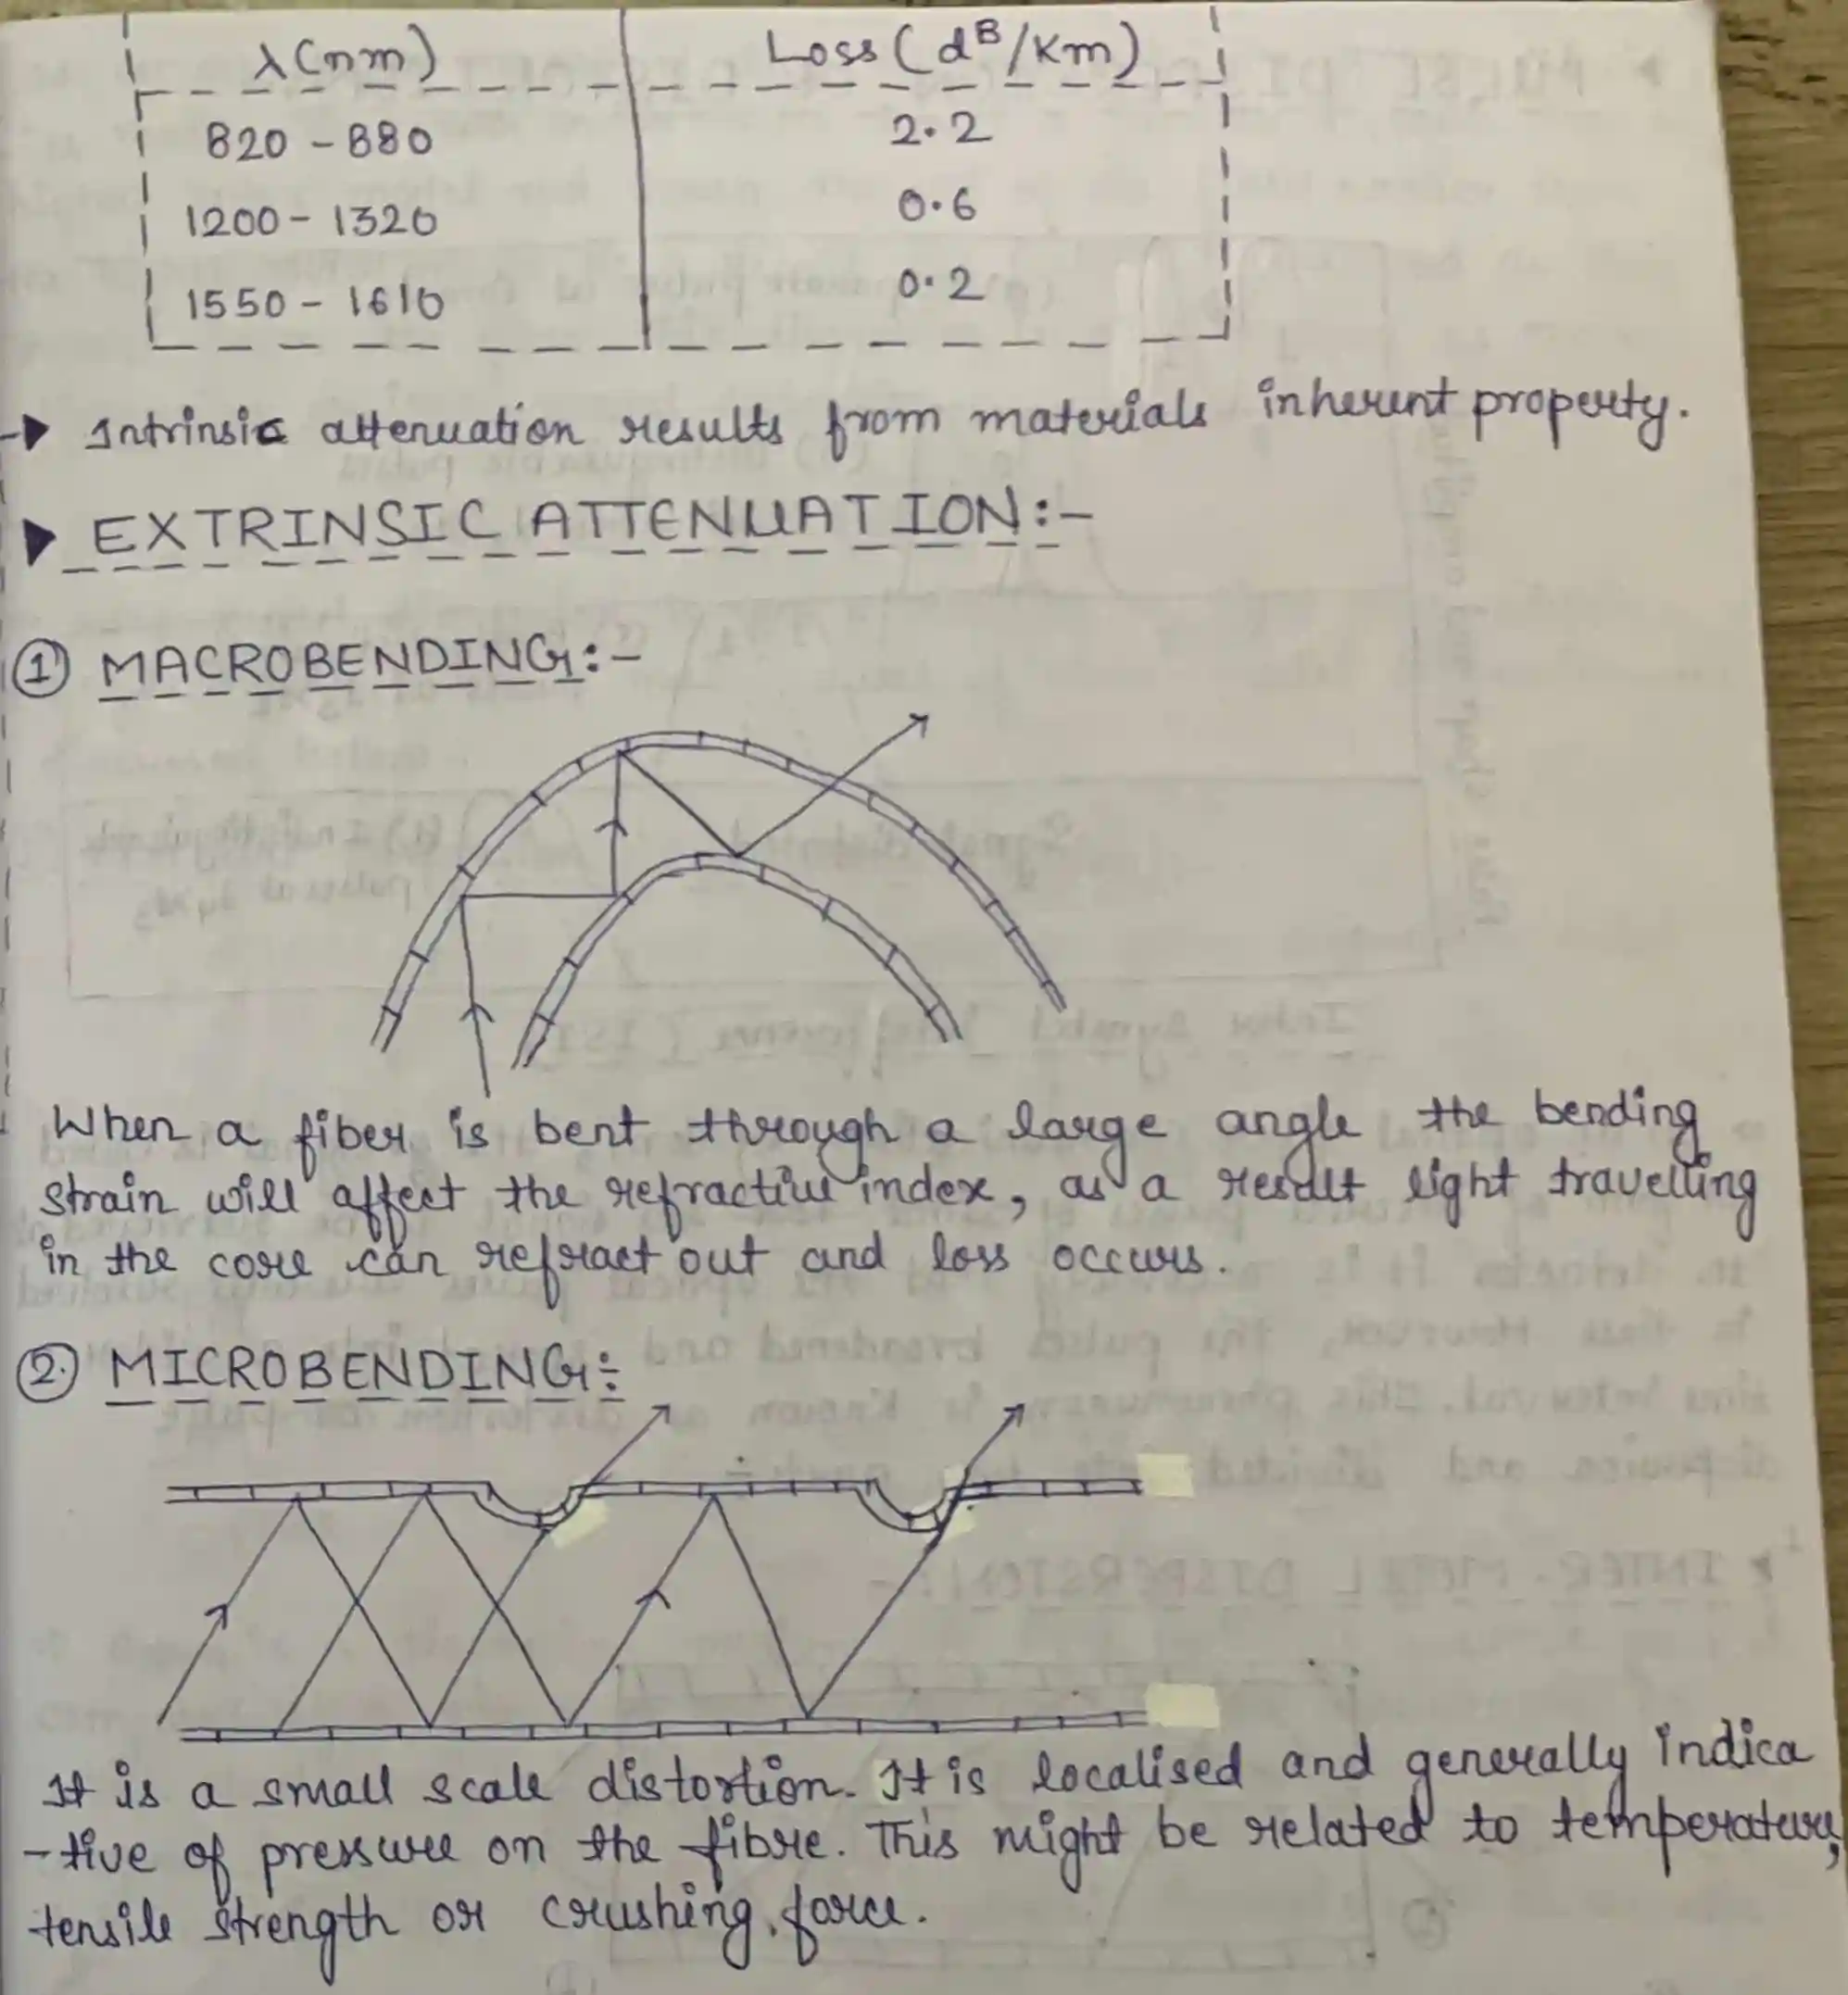 λ(nm) Loss(dB/Km)
820 - 880 2.2
1200 - 1320 0.6
1550 - 1610 0.2
Intrinsic attenuation results from materials inherent property.
EXTRINSIC ATTENUATION:-
① MACROBENDING:-
When a fiber is bent through a large angle the bending
strain will affect the refractive index, as a result light travelling
in the core can refract out and loss occurs.
②. MICROBENDING:-
It is a small scale distortion. It is localised and generally indica
-tive of pressure on the fibre. This might be related to temperature,
tensile strength or crushing force.